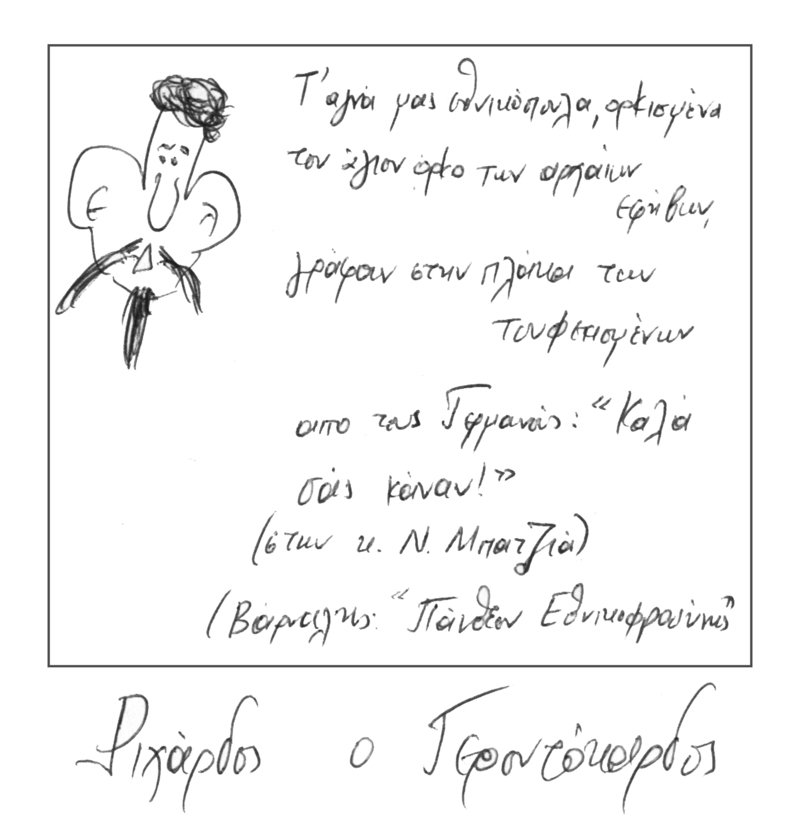 Τ' αγνά μας εθνικόπουλα, ορκισμένα
τον άγιον όρκο των αρχαίων
εφήβων,
γράφαν στην πλάκα των
τουφεκισμένων
απο τους Γερμανούς: “Καλά
σάς κάναν!”
(στην κ. Ν. Μπατζιά)
(Βάρναλης: “Πάνθεον Εθνικοφροσύνης”
Ριχάρδος ο Γεροντόκαρδος